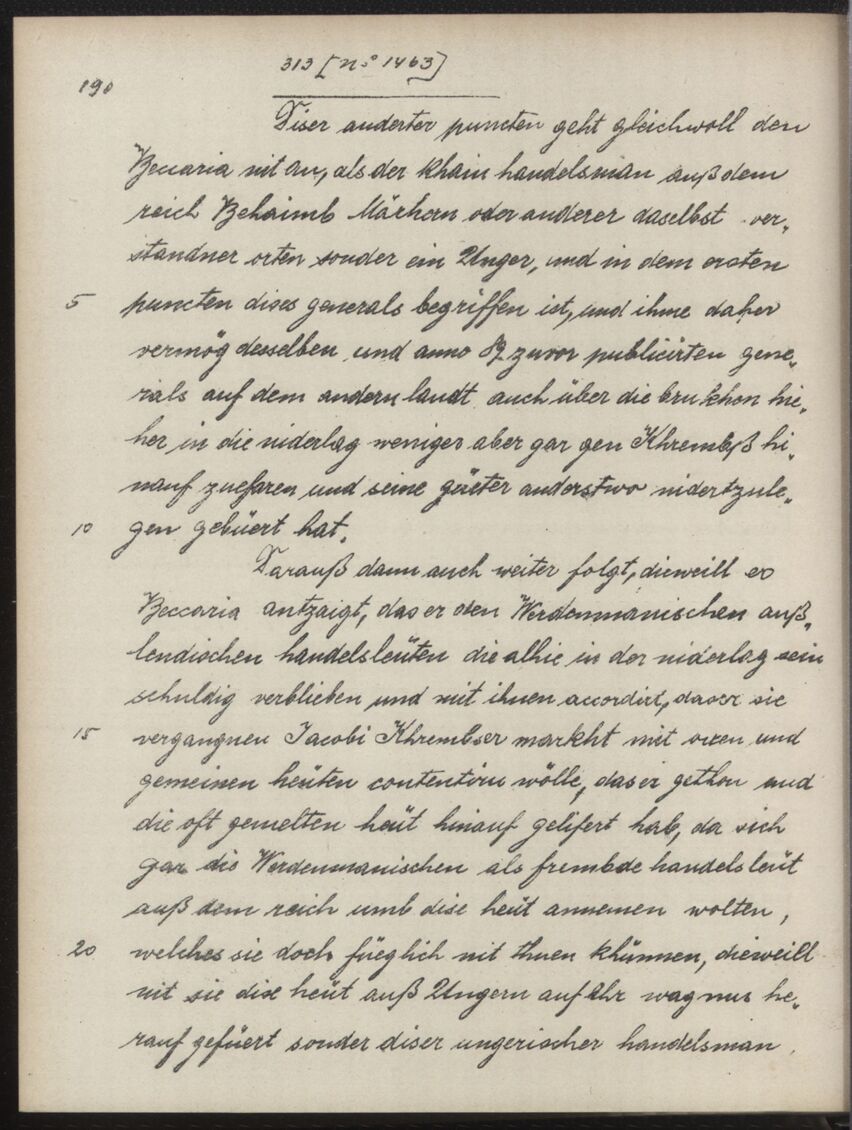 190
313 [n° 1463]
Diser anderter puncten geht gleichwoll den
Beccaria nit an, als der khain handelsman auß dem
reich Behaimb Märhern oder anderer daselbst ver„
standner orten sonder ein Unger, und in dem ersten
5 puncten dises generals begriffen ist, und ihme daher
vermög desselben und anno 82 zuvor publicirten gene„
rials auf dem andern landt auch über die brukhen hie„
her in die niderlag weniger aber gar gen Khrembß hi„
nauf zuefaren und seine güeter anderstwo nidertzule„
10 gen gebüert hat.
Darauß dann auch weiter folgt, dieweill er
Beccaria antzaigt, das er den Werdenmanischen auß„
lendischen handelsleüten die alhie in der niderlag sein
schuldig verblieben und mit ihnen accordirt, das er sie
15 vergangnen Jacobi Khrembser markht mit oxen und
gemeinen heüten contentirn wölle, das er gethon und
die oft gemelten heüt hinauf gelifert hab, da sich
gar die Werdenmanischen als frembde handelsleüt
auß dem reich umb dise heüt annemen wolten,
20 welches sie doch füeglich nit thuen khünnen, dieweill
nit sie dise heüt auß Ungern auf Ihr wagnus he„
rauf gefüert sonder diser ungerischer handelsman